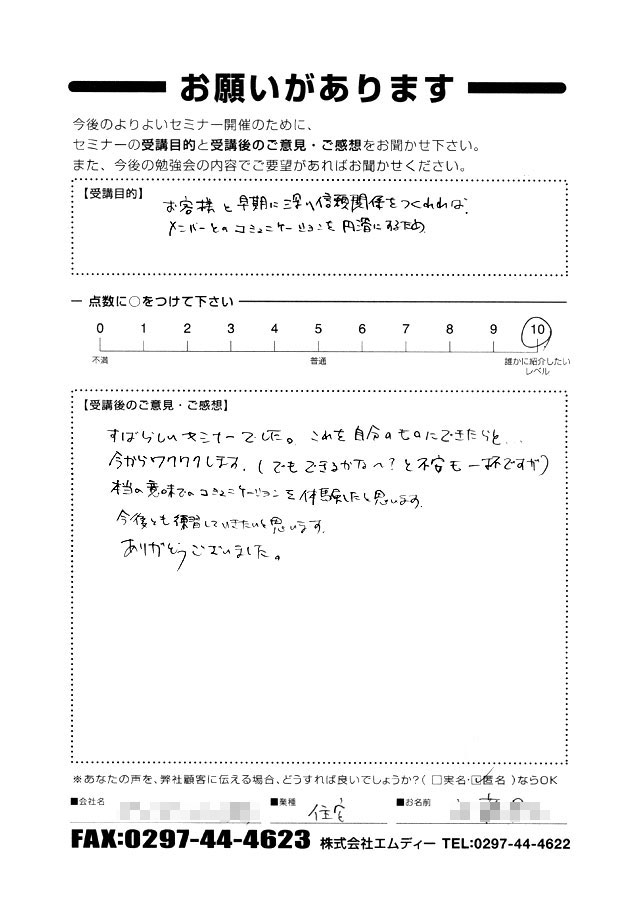 お願いがあります
今後のよりよいセミナー開催のために、
セミナーの受講目的と受講後のご意見・ご感想をお聞かせ下さい。
また、今後の勉強会の内容でご要望があればお聞かせください。
【受講目的】
お客様と早期に深い信頼関係をつくれれば。
メンバーとのコミュニケーションを円滑にするため
点数に○をつけて下さい
0 1 2 3 4 5 6 7 8 9 10
不満 普通 誰かに紹介したい
レベル
【受講後のご意見・ご感想】
すばらしいセミナーでした。これを自分のものにできたらと...
今からワクワクします。(でもできるかな〜?と不安も一杯ですが)
本当の意味でのコミュニケーションを体験したいと思います。
今後とも練習していきたいと思います。
ありがとうございました。
※あなたの声を、弊社顧客に伝える場合、どうすれば良いでしょうか?(□実名・☑匿名)ならOK
■会社名 ■業種 住宅 ■お名前
FAX:0297-44-4623 株式会社エムディー TEL:0297-44-4622